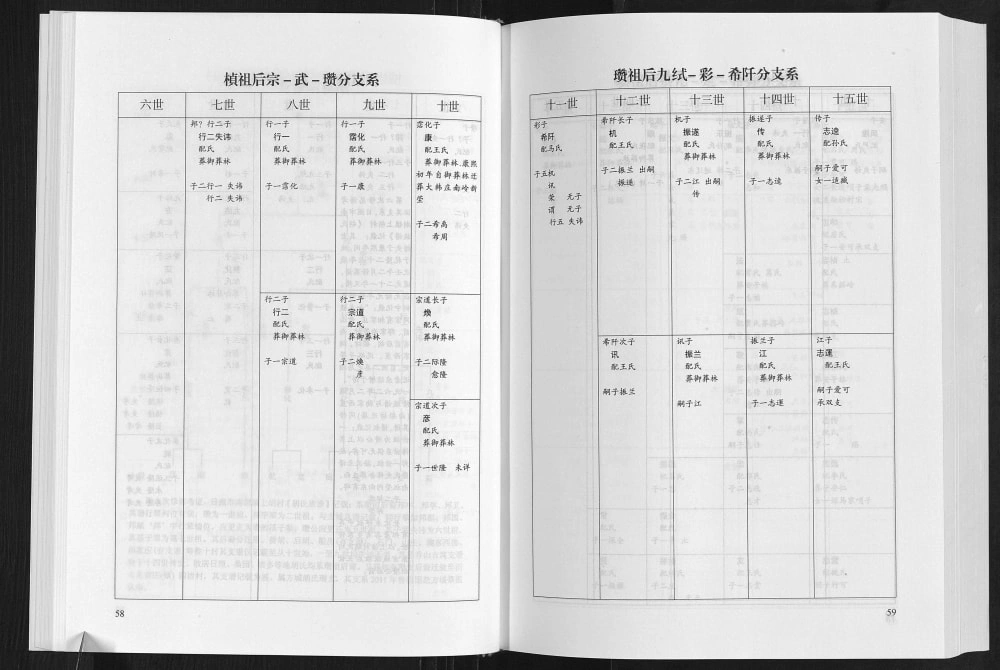 桢祖后宗－武－瓒分支系
六世 七世 八世 九世 十世
邦？行二子
行二失讳
配氏
葬御葬林
子二行一 失讳
行二 失讳
行一子
行一
配氏
葬御葬林
子一霑化
行一子
霑化
配氏
葬御葬林
子一康
霑化子
康
配王氏
葬御葬林.康熙
初年自御葬林迁
葬大韩庄南岭新
茔
子二希禹
希周
行二子
行二
配氏
葬御葬林
子一宗道
行二子
宗道
配氏
葬御葬林
子二焕
彦
宗道长子
焕
配氏
葬御葬林
子二际隆
愈隆
宗道次子
彦
配氏
葬御葬林
子一世隆 未详
58
瓒祖后九弑－彩－希阡分支系
十一世 十二世 十三世 十四世 十五世
彩子
希阡
配马氏
子五机
讯
荣 无子
谓 无子
行五 失讳
希阡长子
机
配王氏
子二振兰 出嗣
振遥
机子
振遥
配氏
葬御葬林
子二江 出嗣
传
振遥子
传
配氏
葬御葬林
子一志逵
传子
志逵
配孙氏
嗣子爱可
女一适臧
希阡次子
讯
配王氏
嗣子振兰
讯子
振兰
配氏
葬御葬林
嗣子江
振兰子
江
配氏
葬御葬林
子一志運
江子
志運
配王氏
嗣子爱可
承双支
59